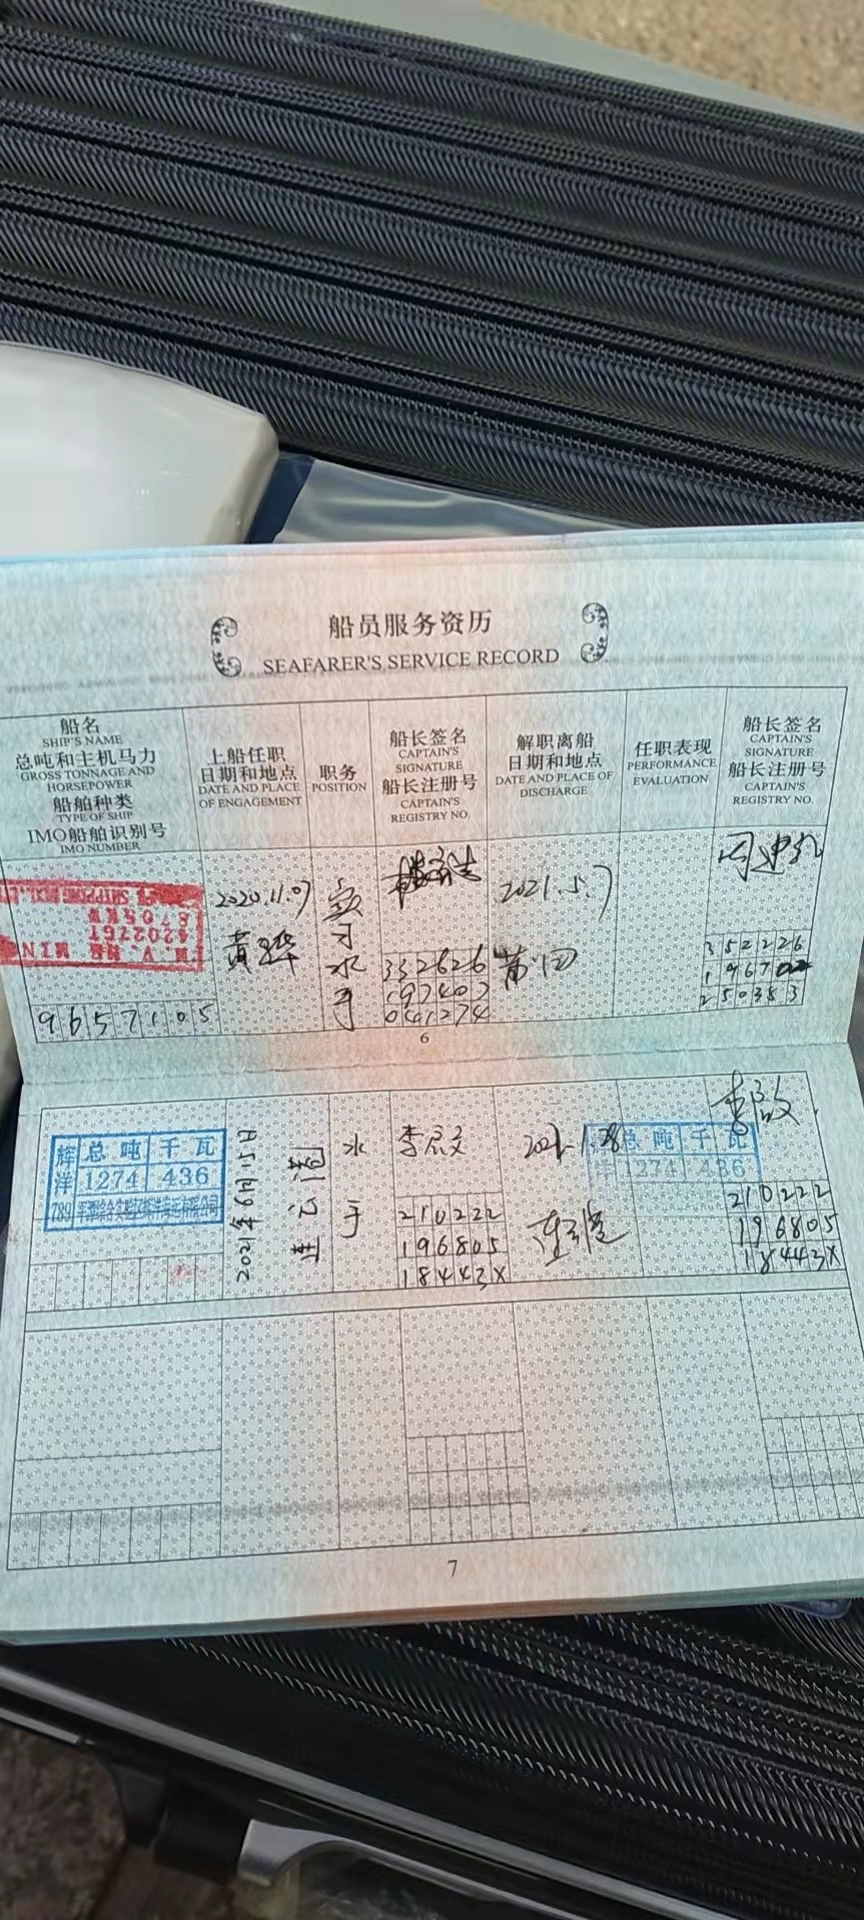 船员服务资历
SEAFARER'S SERVICE RECORD
船名
SHIP'S NAME
总吨和主机马力
GROSS TONNAGE AND
HORSEPOWER
船舶种类
TYPE OF SHIP
IMO船舶识别号
IMO NUMBER
上船任职
日期和地点
DATE AND PLACE
OF ENGAGEMENT
职务
POSITION
船长签名
CAPTAIN'S
SIGNATURE
船长注册号
CAPTAIN'S
REGISTRY NO.
解职离船
日期和地点
DATE AND PLACE OF
DISCHARGE
任职表现
PERFORMANCE
EVALUATION
船长签名
CAPTAIN'S
SIGNATURE
船长注册号
CAPTAIN'S
REGISTRY NO.
9657105
2020.11.07
黄骅
实习水手
332626
197407
2021.5.7
莆田
352226
6
辉洋
789
总吨 千瓦
1274 436
2021年6月15日
连云港
水手
210222
196805
18443X
连云港
总吨 千瓦
洋 1274 436
210222
196805
18443X
7